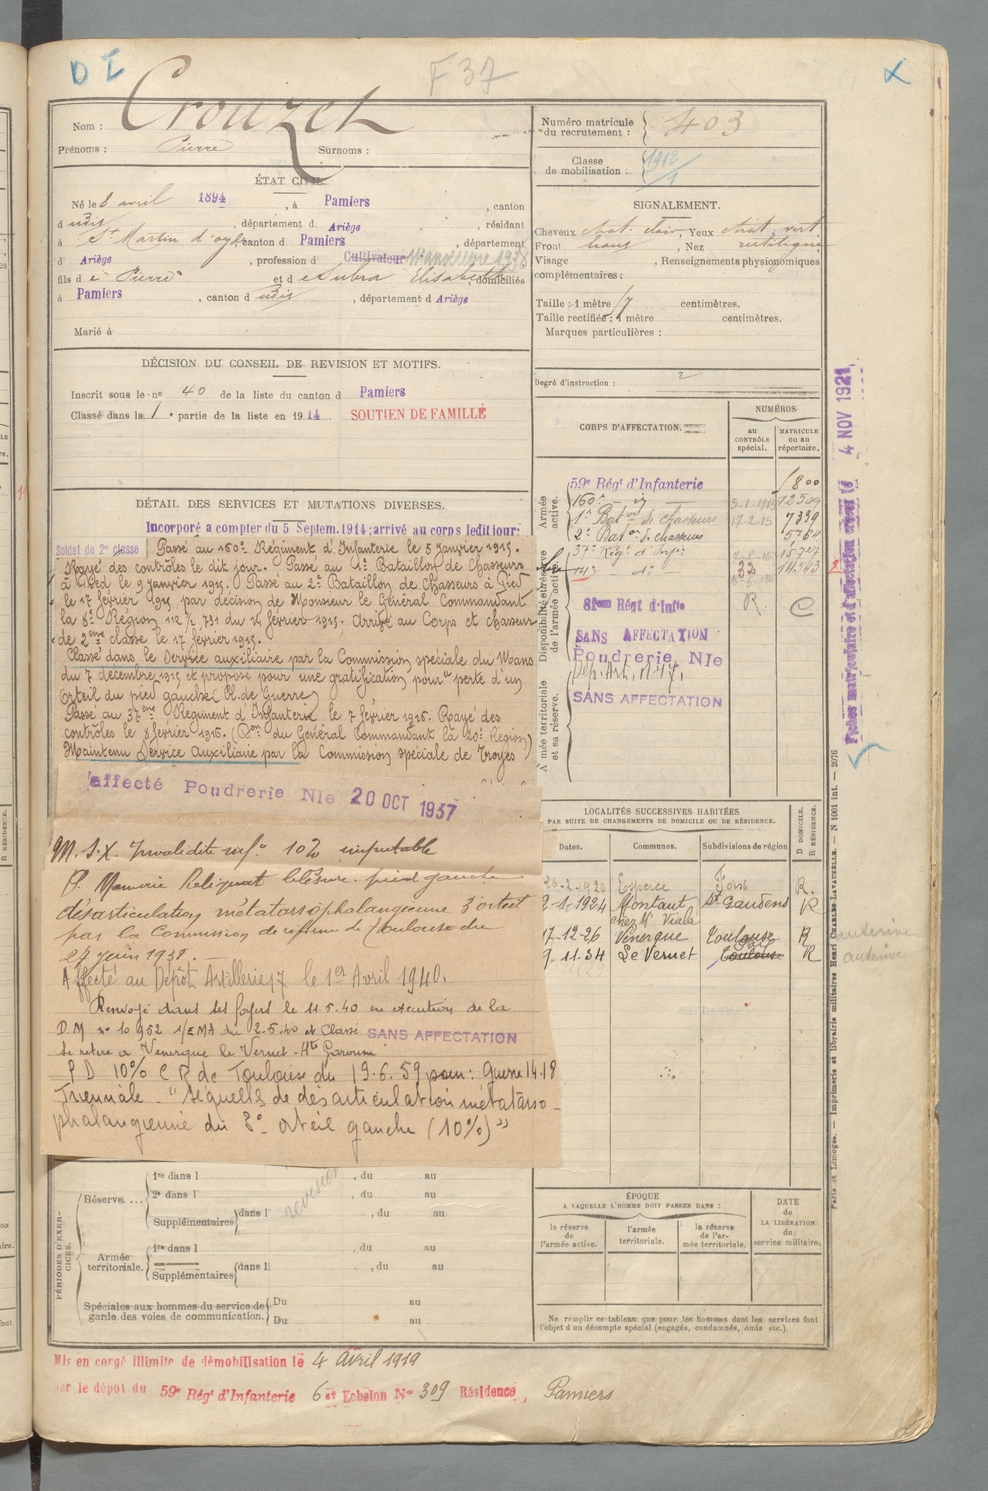 D I
F 37
Nom : Crouzet
Prénoms : Pierre Surnoms :
ÉTAT CIVIL.
Né le 8 avril 1894, à Pamiers, canton
d udis, département d Ariège, résidant
à St Martin d'oydes canton d Pamiers, département
d' Ariège, profession d' Cultivateur
fils d e Pierre et d e Subra Elisabeth, domiciliés
à Pamiers, canton d udis, département d Ariège
Marié à
DÉCISION DU CONSEIL DE REVISION ET MOTIFS.
Inscrit sous le nº 40 de la liste du canton d Pamiers
Classé dans la 1e partie de la liste en 1914 SOUTIEN DE FAMILLE
DÉTAIL DES SERVICES ET MUTATIONS DIVERSES.
Incorporé a compter du 5 Septem. 1914; arrivé au corps ledit jour:
Soldat de 2e classe Passé au 160e Régiment d'Infanterie le 5 Janvier 1915.
Rayé des contrôles le dit jour. Passé au 1er Bataillon de Chasseurs
à Pied le 9 Janvier 1915. Passé au 2e Bataillon de Chasseurs à Pied
le 17 février 1915, par décision de Monsieur le Général Commandant
la 8e Région, 731 du février 1915. Arrivé au Corps et chasseur
de 2ème classe le 17 février 1915.
Classé dans le Service auxiliaire par la Commission spéciale du Mans
du 7 décembre 1915 et proposé pour une gratification pour "perte d'un
orteil du pied gauche (Bl. de Guerre)
Passé au 37eme Régiment d'Infanterie le 7 février 1916. Rayé des
contrôles le 8 février 1916. (Don du Général Commandant la 20e Région)
Maintenu Service Auxiliaire par la Commission spéciale de Troyes
affecté Poudrerie Nle 20 OCT 1937
M. S.X. Invalidité inf.re 10% imputable
P. Reliquat blessure pied gauche
désarticulation métatarsophalangienne 3e orteil
par la Commission de réforme de Toulouse du
24 juin 1938.
Affecté au Dépôt Artillerie 17 le 1er Avril 1940.
Renvoyé dans ses foyers le 11.5.40 en exécution de la
D.M nº 10952 1/EMA du 2-5-40 et Classé SANS AFFECTATION
Se retire à Venerque le Vernet - Hte Garonne
P D 10% C R de Toulouse du 19.6.59 pour: Guerre 14.18
Triennale. "Séquelles de désarticulation métatarso-
phalangienne du 3e orteil gauche (10%)"
PÉRIODES D'EXERCICES.
Réserve. ...
1re dans l , du au
2e dans l , du au
Supplémentaires dans l , du au
revision
Armée territoriale.
1re dans l , du au
Supplémentaires dans l , du au
Spéciales aux hommes du service de garde des voies de communication.
Du au
Du au
Mis en congé illimité de démobilisation le 4 Avril 1919
par le dépôt du 59e Régt d'Infanterie 6e Echelon Nº 309 Résidence, Pamiers
Numéro matricule du recrutement : 403
Classe de mobilisation :
SIGNALEMENT.
Cheveux chat. clair, Yeux chat. vert
Front haut, Nez rectiligne
Visage , Renseignements physionomiques
complémentaires :
Taille : 1 mètre 17 centimètres.
Taille rectifiée : 1 mètre centimètres.
Marques particulières :
Degré d'instruction : 2
CORPS D'AFFECTATION.
NUMÉROS
AU CONTRÔLE spécial.
MATRICULE ou au répertoire.
Armée active.
59e Régt d'Infanterie 1800
160e 5-1-1915 12509
1er Baton de chasseurs 17-2-15 7339
2e Baton de chasseurs 5764
Disponibilité et réserve de l'armée active.
37e Régt d'Infie 15727
32 14543
81eme Régt d'Infie R C
SANS AFFECTATION
Poudrerie Nle
Dép. Art. Nº 17
Armée territoriale et sa réserve.
SANS AFFECTATION
LOCALITÉS SUCCESSIVES HABITÉES
PAR SUITE DE CHANGEMENTS DE DOMICILE OU DE RÉSIDENCE.
Dates. Communes. Subdivisions de région D DOMICILE. R RÉSIDENCE.
26-2-1920 Esperce R.
2-1-1924 Montaut St Gaudens R
chez Mr Viala
17-12-26 Venerque Toulouse R
9.11.34 Le Vernet Toulouse R
auterive
auterive
ÉPOQUE
A LAQUELLE L'HOMME DOIT PASSER DANS :
la réserve de l'armée active.
l'armée territoriale.
la réserve de l'armée territoriale.
DATE de LA LIBÉRATION du service militaire.
Ne remplir ce tableau que pour les hommes dont les services font
l'objet d'un décompte spécial (engagés, condamnés, omis etc.).
4 NOV 1921
Paris et Limoges. — Imprimerie et librairie militaires Henri CHARLES-LAVAUZELLE. — N 1001 Int. — 2076